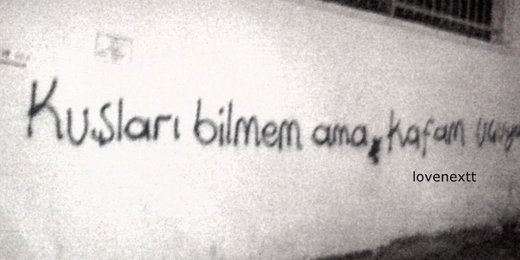 Kuşları bilmem ama, kafam
lovenextt